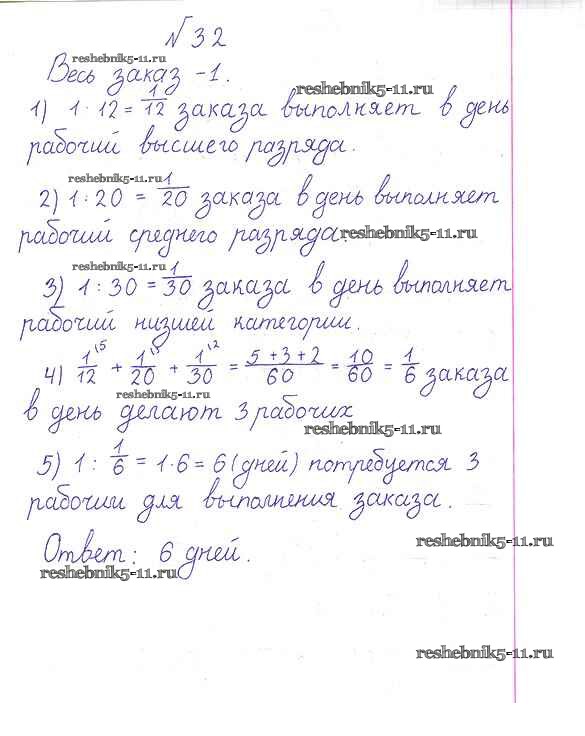 № 32
reshebnik5-11.ru
Весь заказ - 1.
reshebnik5-11.ru
1) 1 · 12 = 1/12 заказа выполняет в день
рабочий высшего разряда.
reshebnik5-11.ru
2) 1 : 20 = 1/20 заказа в день выполняет
рабочий среднего разряда.
reshebnik5-11.ru
reshebnik5-11.ru
3) 1 : 30 = 1/30 заказа в день выполняет
рабочий низшей категории.
4) 1\5/12 + 1\3/20 + 1\2/30 = 5+3+2/60 = 10/60 = 1/6 заказа
reshebnik5-11.ru
в день делают 3 рабочих
reshebnik5-11.ru
5) 1 : 1/6 = 1·6 = 6 (дней) потребуется 3
рабочим для выполнения заказа.
Ответ: 6 дней.
reshebnik5-11.ru
reshebnik5-11.ru
reshebnik5-11.ru